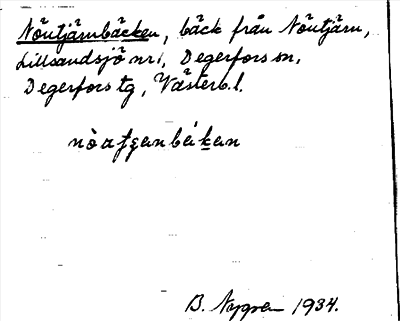 Nöutjärnbäcken, bäck från Nöutjärn,
Lillsandsjö nr 1, Degerfors sn,
Degerfors tg, Västerb.l.
B. Nygren 1934.